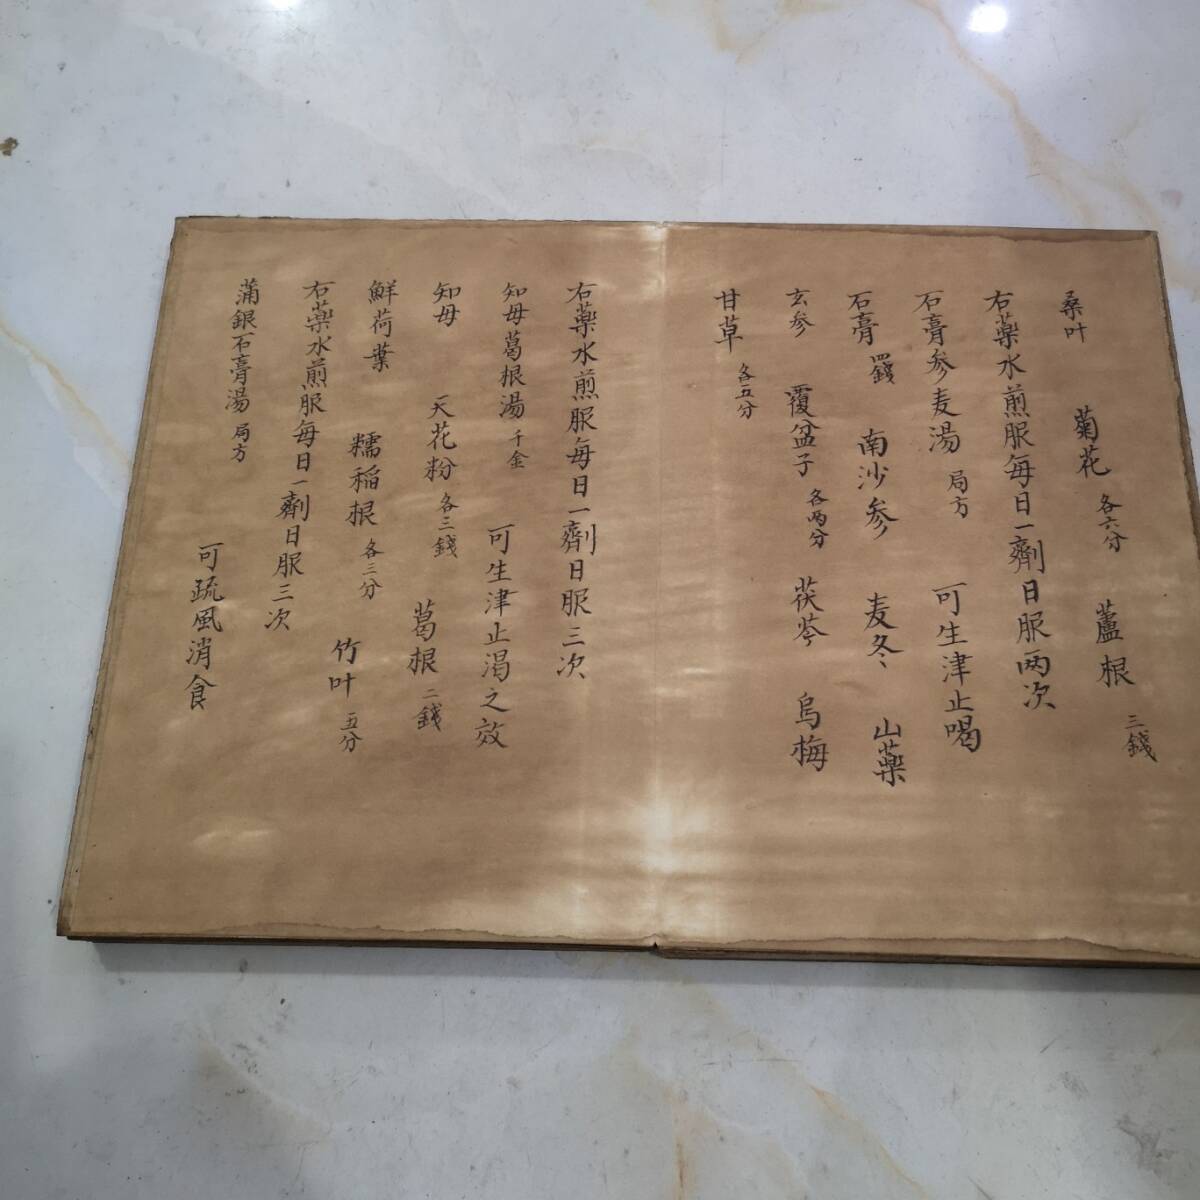 桑叶 菊花 各六分 蘆根 三錢
右藥水煎服每日一劑日服两次
石膏参麦湯 局方 可生津止喝
石膏 四錢 南沙参 麦冬 山藥
玄参 覆盆子 各两分 茯苓 烏梅
甘草 各五分
右藥水煎服每日一劑日服三次
知母葛根湯 千金 可生津止渴之效
知母 天花粉 各三錢 葛根 二錢
鮮荷葉 糯稲根 各三分 竹叶 五分
右藥水煎服每日一劑日服三次
蒲銀石膏湯 局方 可疏風消食